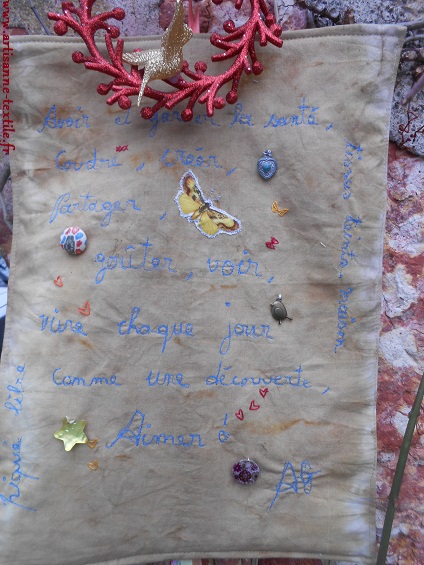 Avoir et garder la santé,
Coudre, créer,
Partager,
goûter, voir,
vivre chaque jour
comme une découverte,
Aimer é
AB
piqué libre
tissus teints maison
www.artisanne-textile.fr